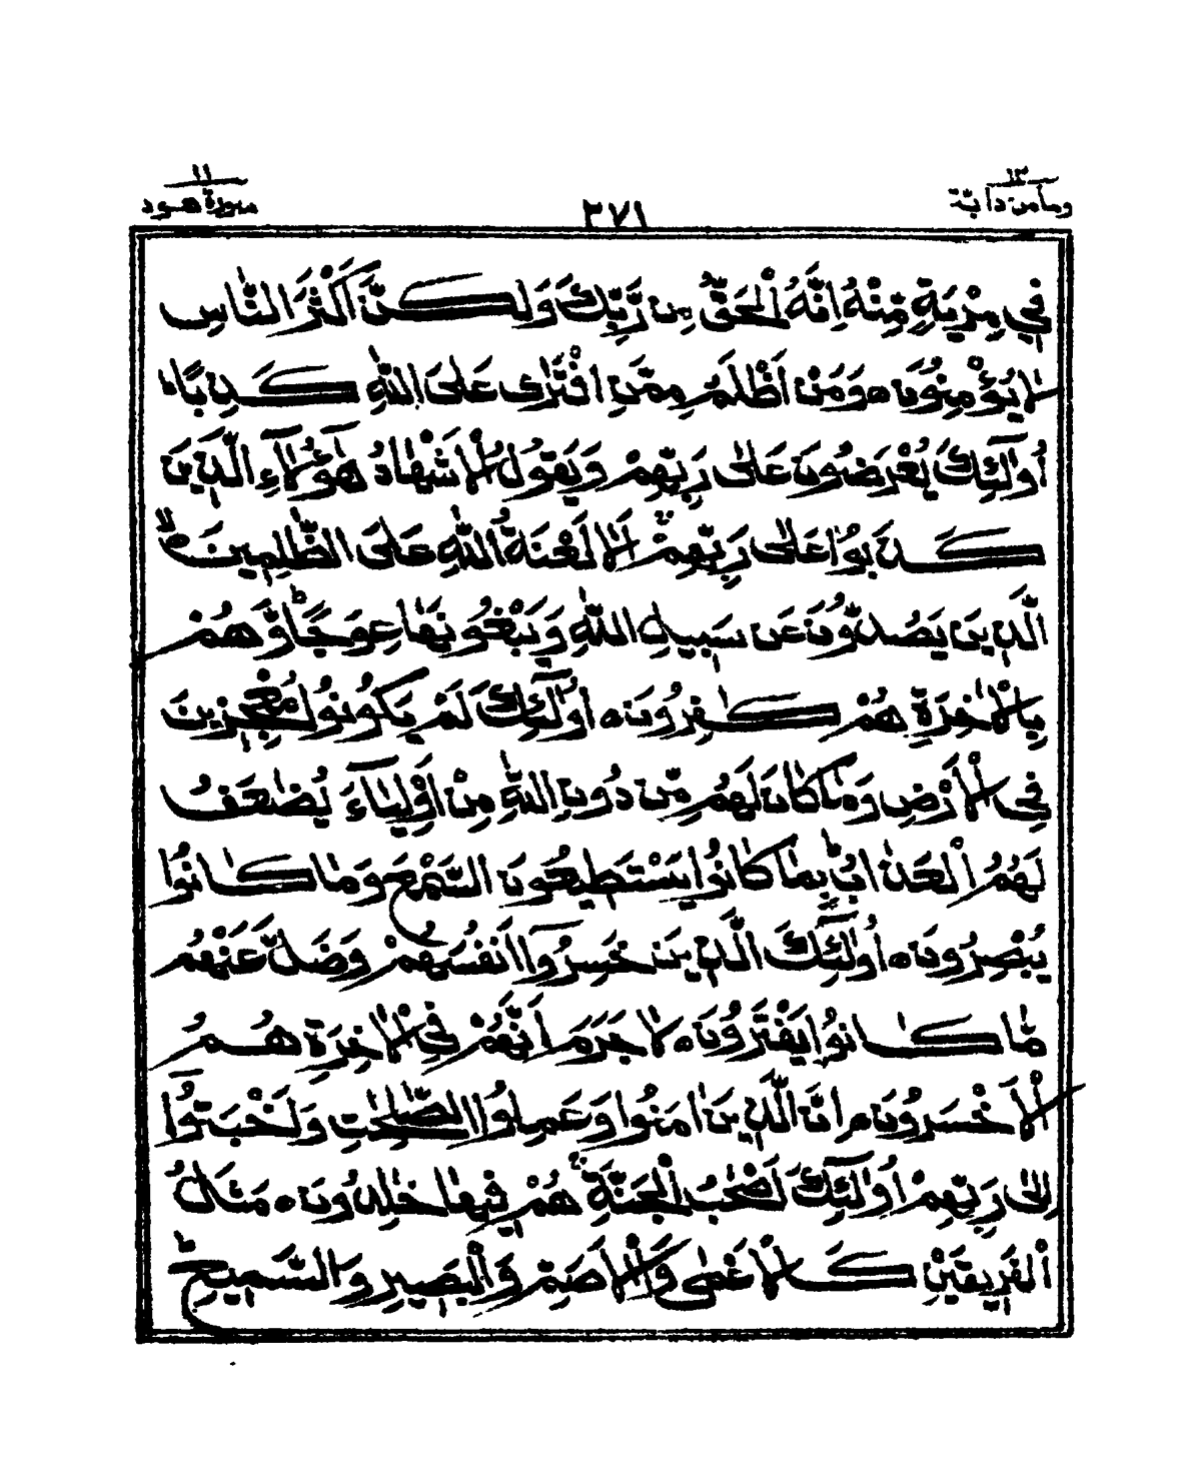 وما من دآبة ١٢
٣٧١
سورة هود ١١
فِي مِرْيَةٍ مِّنْهُ اِنَّهُ الْحَقُّ مِن رَّبِّكَ وَلٰكِنَّ اَكْثَرَ النَّاسِ
لَا يُؤْمِنُونَ ه وَمَنْ اَظْلَمُ مِمَّنِ افْتَرٰى عَلَى اللّٰهِ كَذِبًا ه
اُولٰٓئِكَ يُعْرَضُونَ عَلٰى رَبِّهِمْ وَيَقُولُ الْاَشْهَادُ هٰٓؤُلَآءِ الَّذِينَ
كَذَبُوا عَلٰى رَبِّهِمْ ۚ اَلَا لَعْنَةُ اللّٰهِ عَلَى الظّٰلِمِينَ ۙ
الَّذِينَ يَصُدُّونَ عَن سَبِيلِ اللّٰهِ وَيَبْغُونَهَا عِوَجًا ؕ وَّهُمْ
بِالْاٰخِرَةِ هُمْ كٰفِرُونَ ه اُولٰٓئِكَ لَمْ يَكُونُوا مُعْجِزِينَ
فِى الْاَرْضِ وَمَا كَانَ لَهُم مِّن دُونِ اللّٰهِ مِنْ اَوْلِيَآءَ يُضٰعَفُ
لَهُمُ الْعَذَابُ ؕ بِمَا كَانُوا يَسْتَطِيعُونَ السَّمْعَ وَمَا كَانُوا
يُبْصِرُونَ ه اُولٰٓئِكَ الَّذِينَ خَسِرُوٓا اَنفُسَهُمْ وَضَلَّ عَنْهُم
مَّا كَانُوا يَفْتَرُونَ ه لَا جَرَمَ اَنَّهُمْ فِى الْاٰخِرَةِ هُمُ
الْاَخْسَرُونَ ه اِنَّ الَّذِينَ اٰمَنُوا وَعَمِلُوا الصّٰلِحٰتِ وَاَخْبَتُوٓا
اِلٰى رَبِّهِمْ اُولٰٓئِكَ اَصْحٰبُ الْجَنَّةِ ۚ هُمْ فِيهَا خٰلِدُونَ ه مَثَلُ
الْفَرِيقَيْنِ كَالْاَعْمٰى وَالْاَصَمِّ وَالْبَصِيرِ وَالسَّمِيعِ ؕ